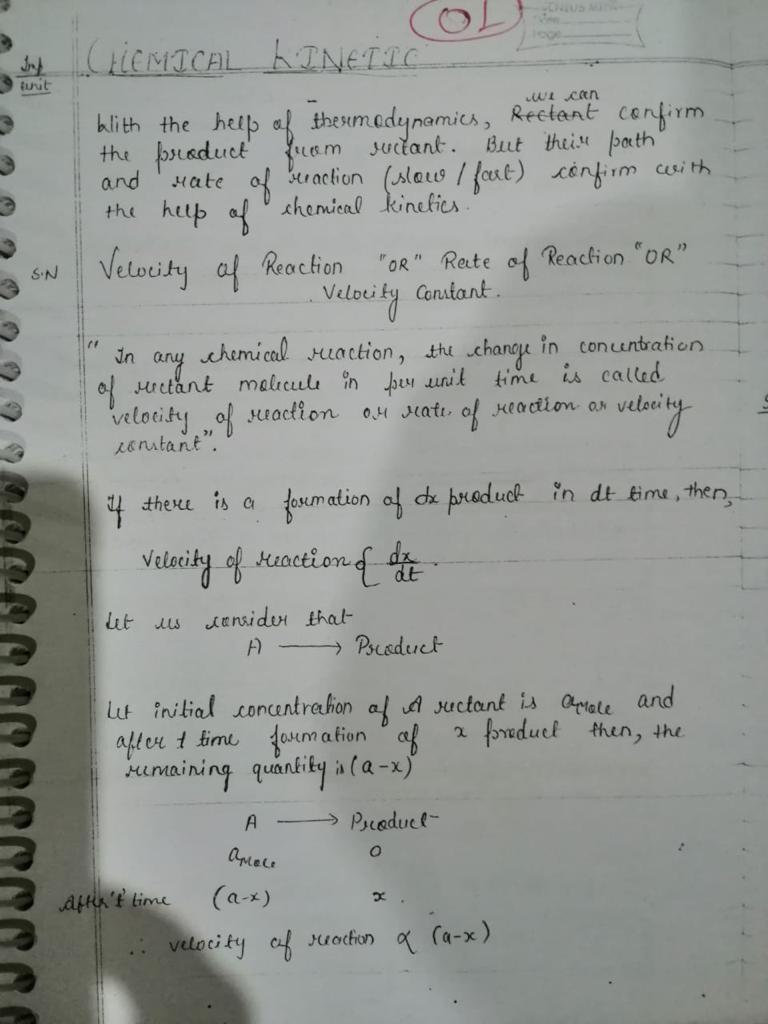 01
GENIUS
Page
CHEMICAL KINETIC
Imp
unit
we can
With the help of thermodynamics, Rectant confirm
the product from rectant. But their path
and rate of reaction (slow / fast) confirm with
the help of chemical kinetics.
S.N
Velocity of Reaction "OR" Rate of Reaction "OR"
Velocity Constant.
" In any chemical reaction, the change in concentration
of rectant molecule in per unit time is called
velocity of reaction or rate of reaction or velocity
constant".
If there is a formation of dx product in dt time, then,
Velocity of reaction ∝ dx/dt.
Let us consider that
A ⟶ Product
Let initial concentration of A rectant is a mole and
after t time formation of x product then, the
remaining quantity is (a-x)
A ⟶ Product
a mole 0
After 't' time (a-x) x.
∴ velocity of reaction ∝ (a-x)